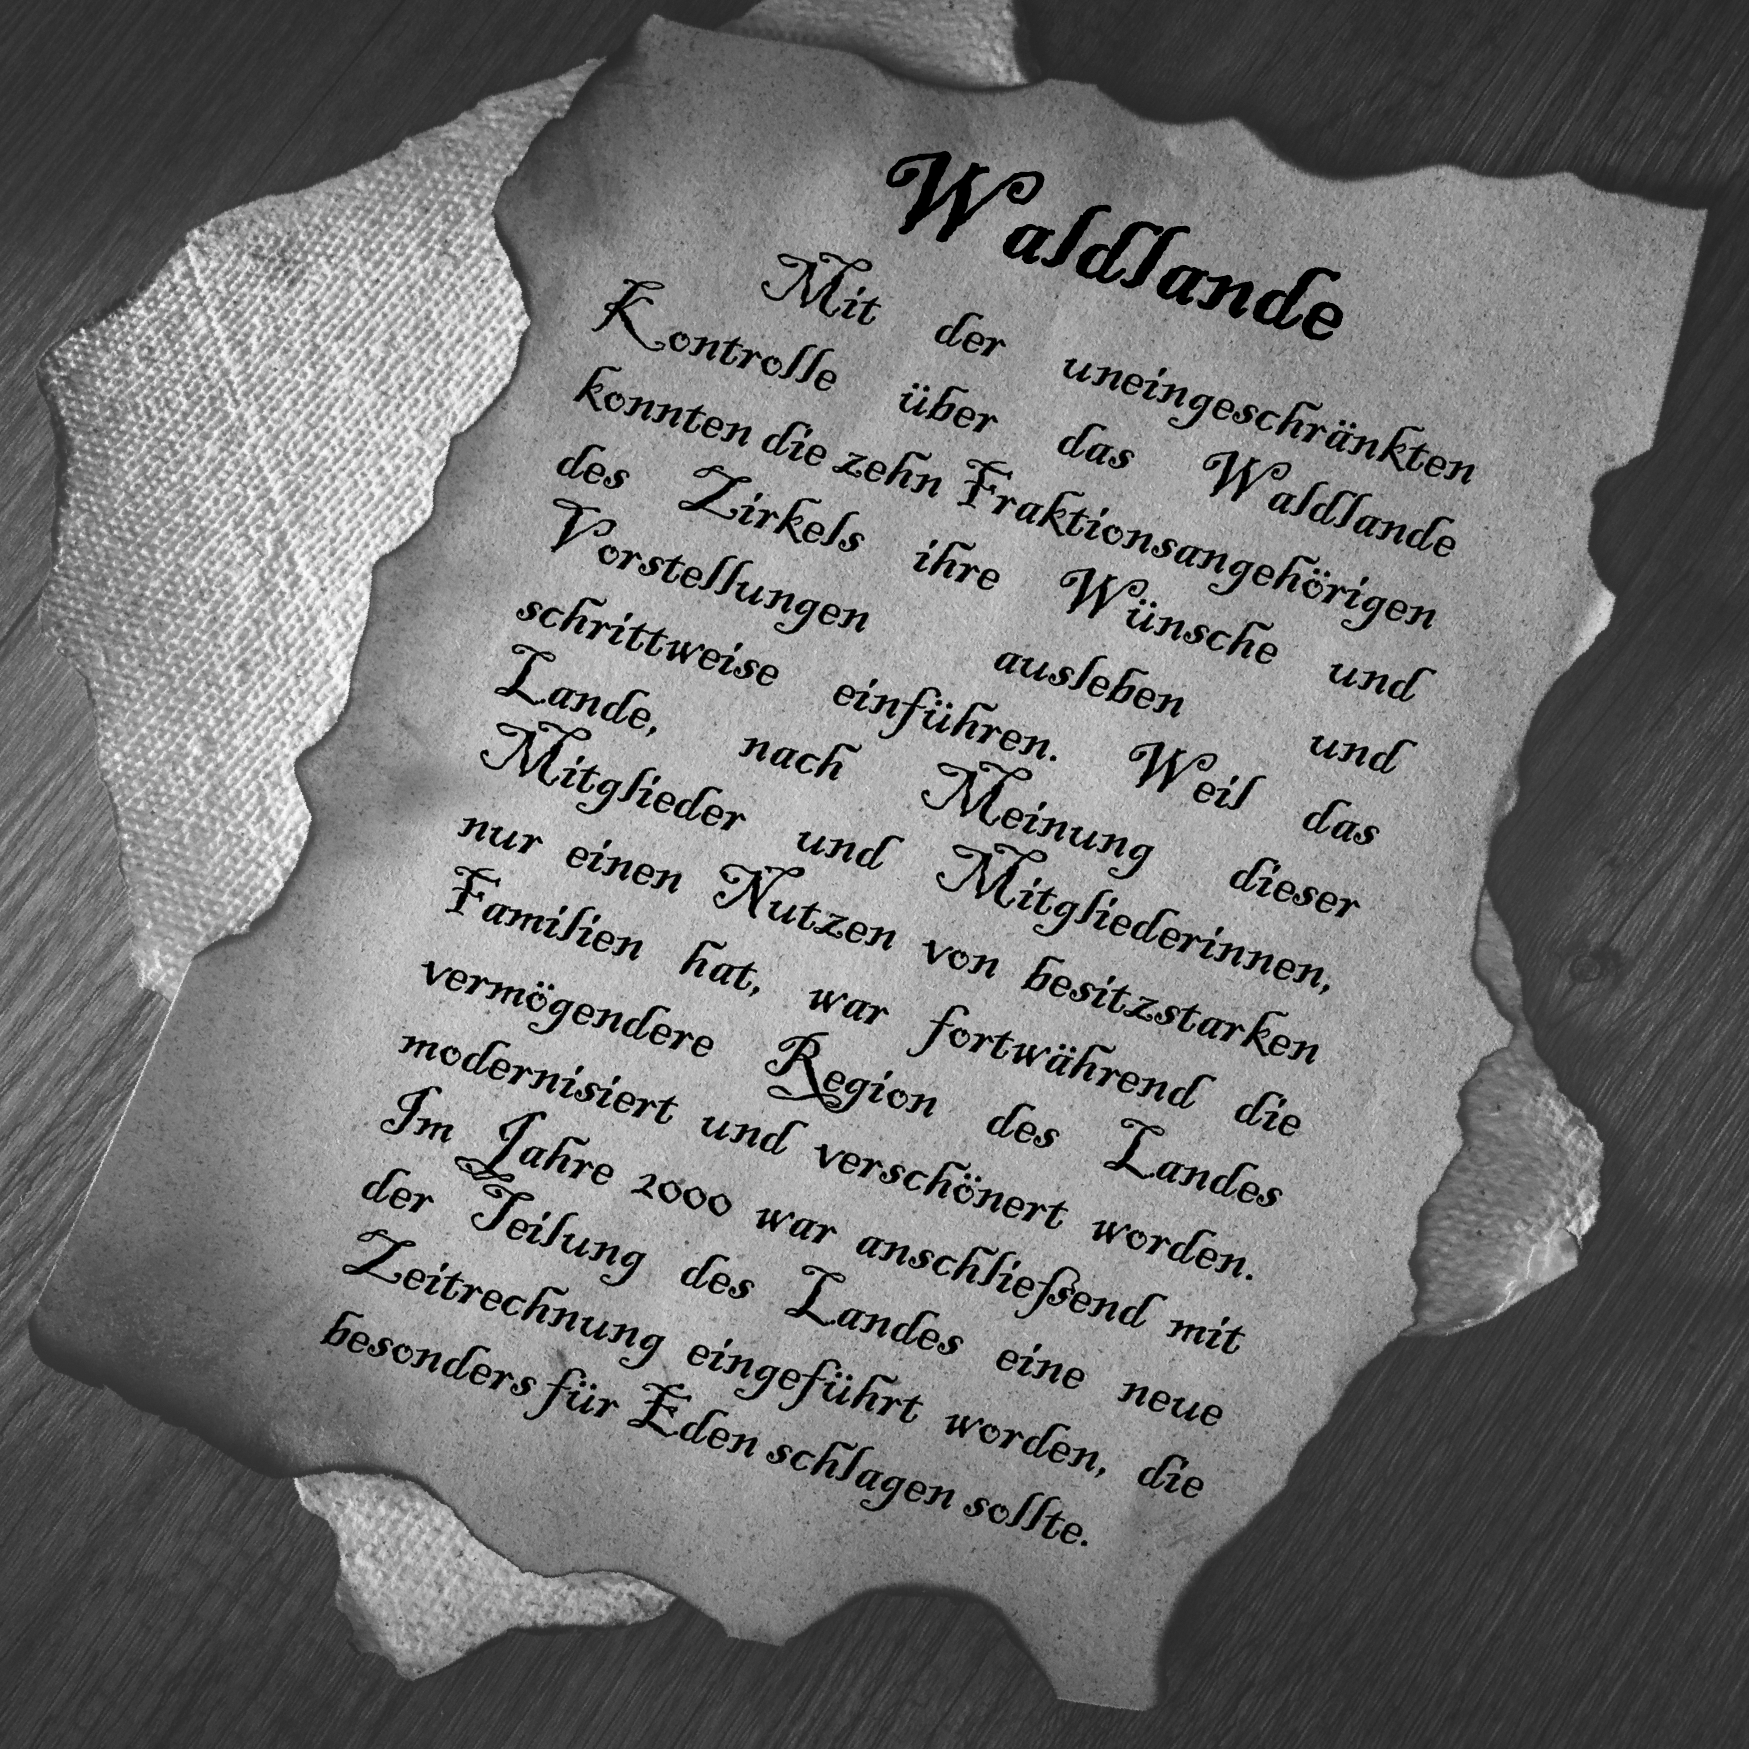 Waldlande
Mit der uneingeschränkten
Kontrolle über das Waldlande
konnten die zehn Fraktionsangehörigen
des Zirkels ihre Wünsche und
Vorstellungen ausleben und
schrittweise einführen. Weil das
Lande, nach Meinung dieser
Mitglieder und Mitgliederinnen,
nur einen Nutzen von besitzstarken
Familien hat, war fortwährend die
vermögendere Region des Landes
modernisiert und verschönert worden.
Im Jahre 2000 war anschließend mit
der Teilung des Landes eine neue
Zeitrechnung eingeführt worden, die
besonders für Eden schlagen sollte.